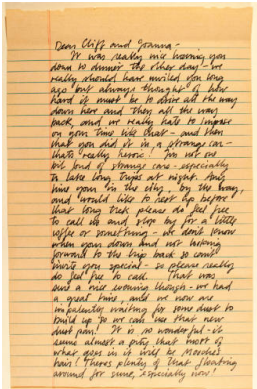 Dear Cliff and Joanna -
It was really nice having you
down to dinner the other day - we
really should have invited you long
ago but always thought of how
hard it must be to drive all the way
down here and then all the way
back, and we really hate to impose
on you time like that - and then
that you did it in a strange car -
thats really heroic. I'm not
fond of strange cars - especially
in late long trips at night. Any
time your in the city, by the way,
and would like to rest up before
that long trek please do feel free
to call us and stop by for a little
coffee or something - we don't know
when you down and not looking
forward to the trip back so cant
invite you special - so please really
do feel free to call. That was
sure a nice evening though - we had
a great time, and we now are
impatiently waiting for some dust to
build up so we can use that new
dust pan! It is so wonderful - it
seems almost a pity that most of
what goes in it will be
hair! Theres plenty of that floating
around for sure, especially now!